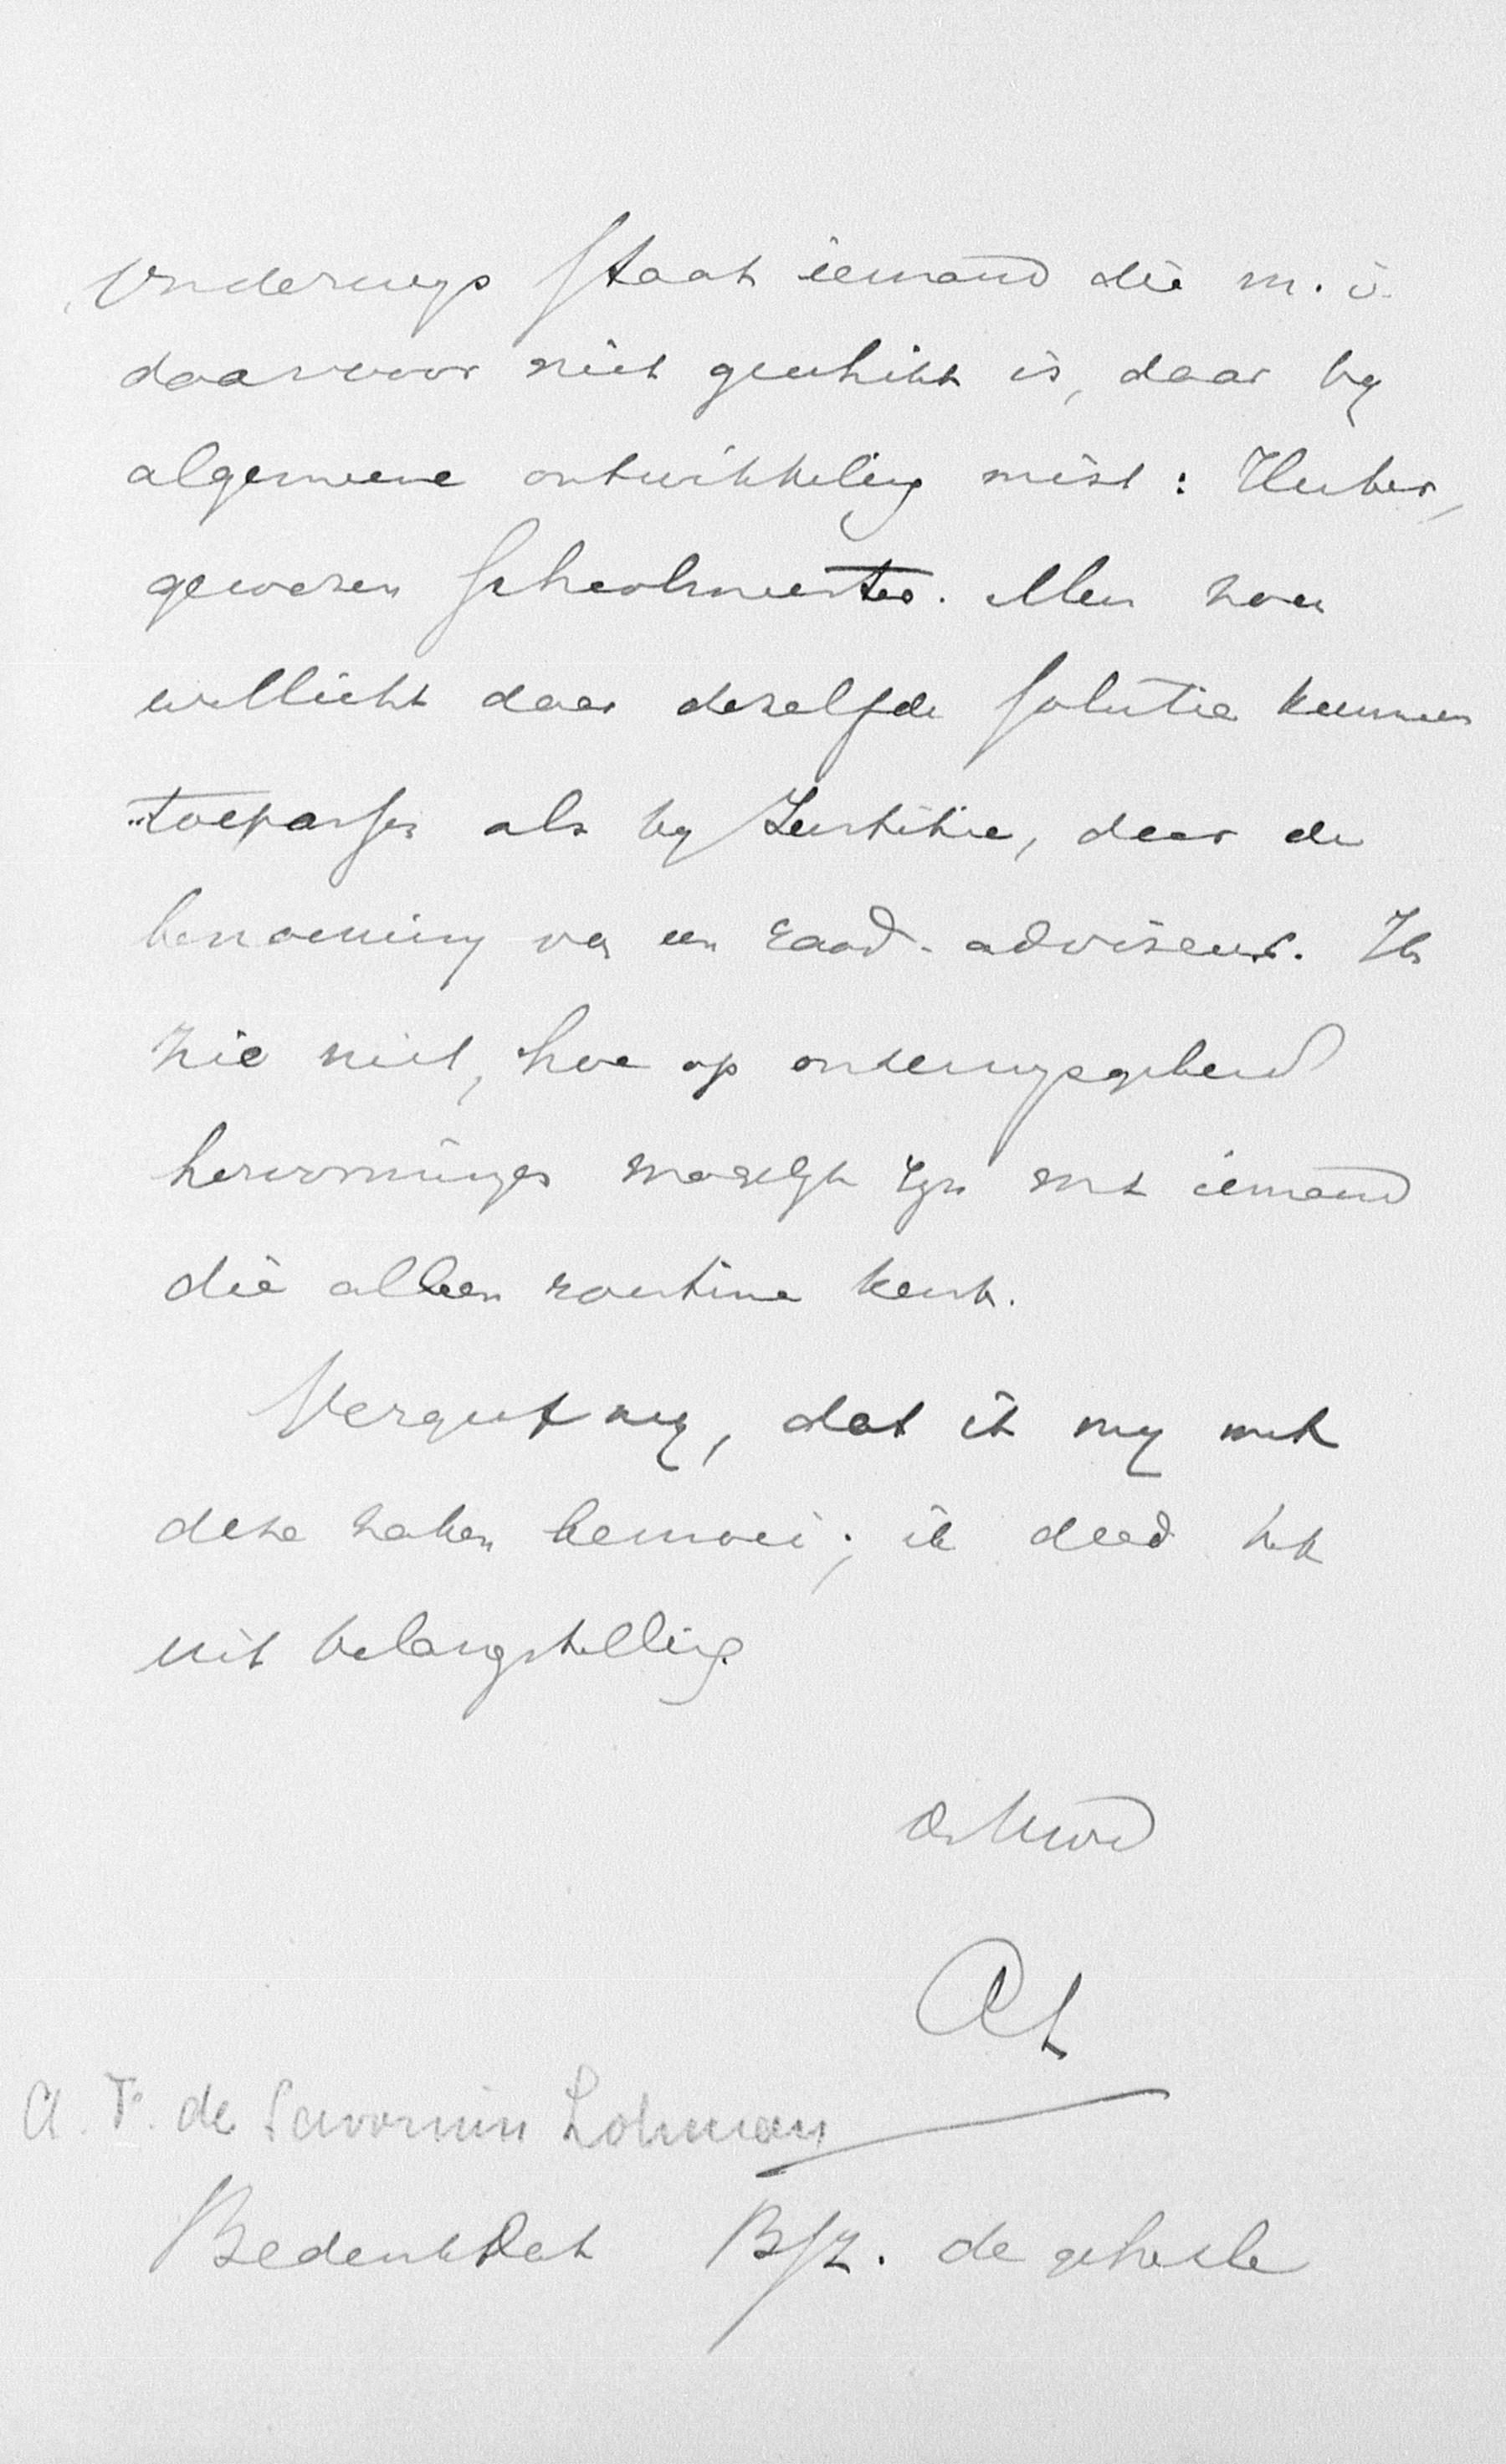 Onderwijs staat iemand die m.i.
daarvoor niet geschikt is, daar hij
algemeene ontwikkeling mist: Huber,
gewezen schoolmeester. Men zou
wellicht daar dezelfde solutie kunnen
toepassen als bij Justitie, door de
benoeming van een raad-adviseur. Ik
zie niet, hoe op onderwijsgebied
hervormingen mogelijk zijn met iemand
die alleen routine kent.
Vergeef mij, dat ik mij met
deze zaken bemoei; ik deed het
uit belangstelling.
AL
A. F. de Savornin Lohman
Bedenk dat de geheele